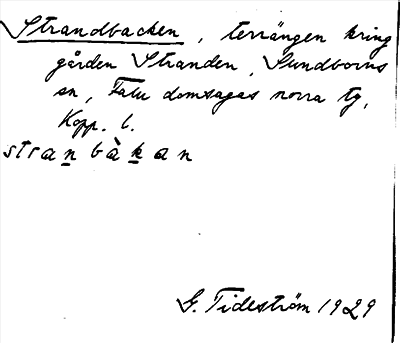 Strandbacken, terrängen kring
gården Stranden, Sundborns
sn, Falu domsagas norra tg,
Kopp. l.
stranbàkan
G. Tideström 1929